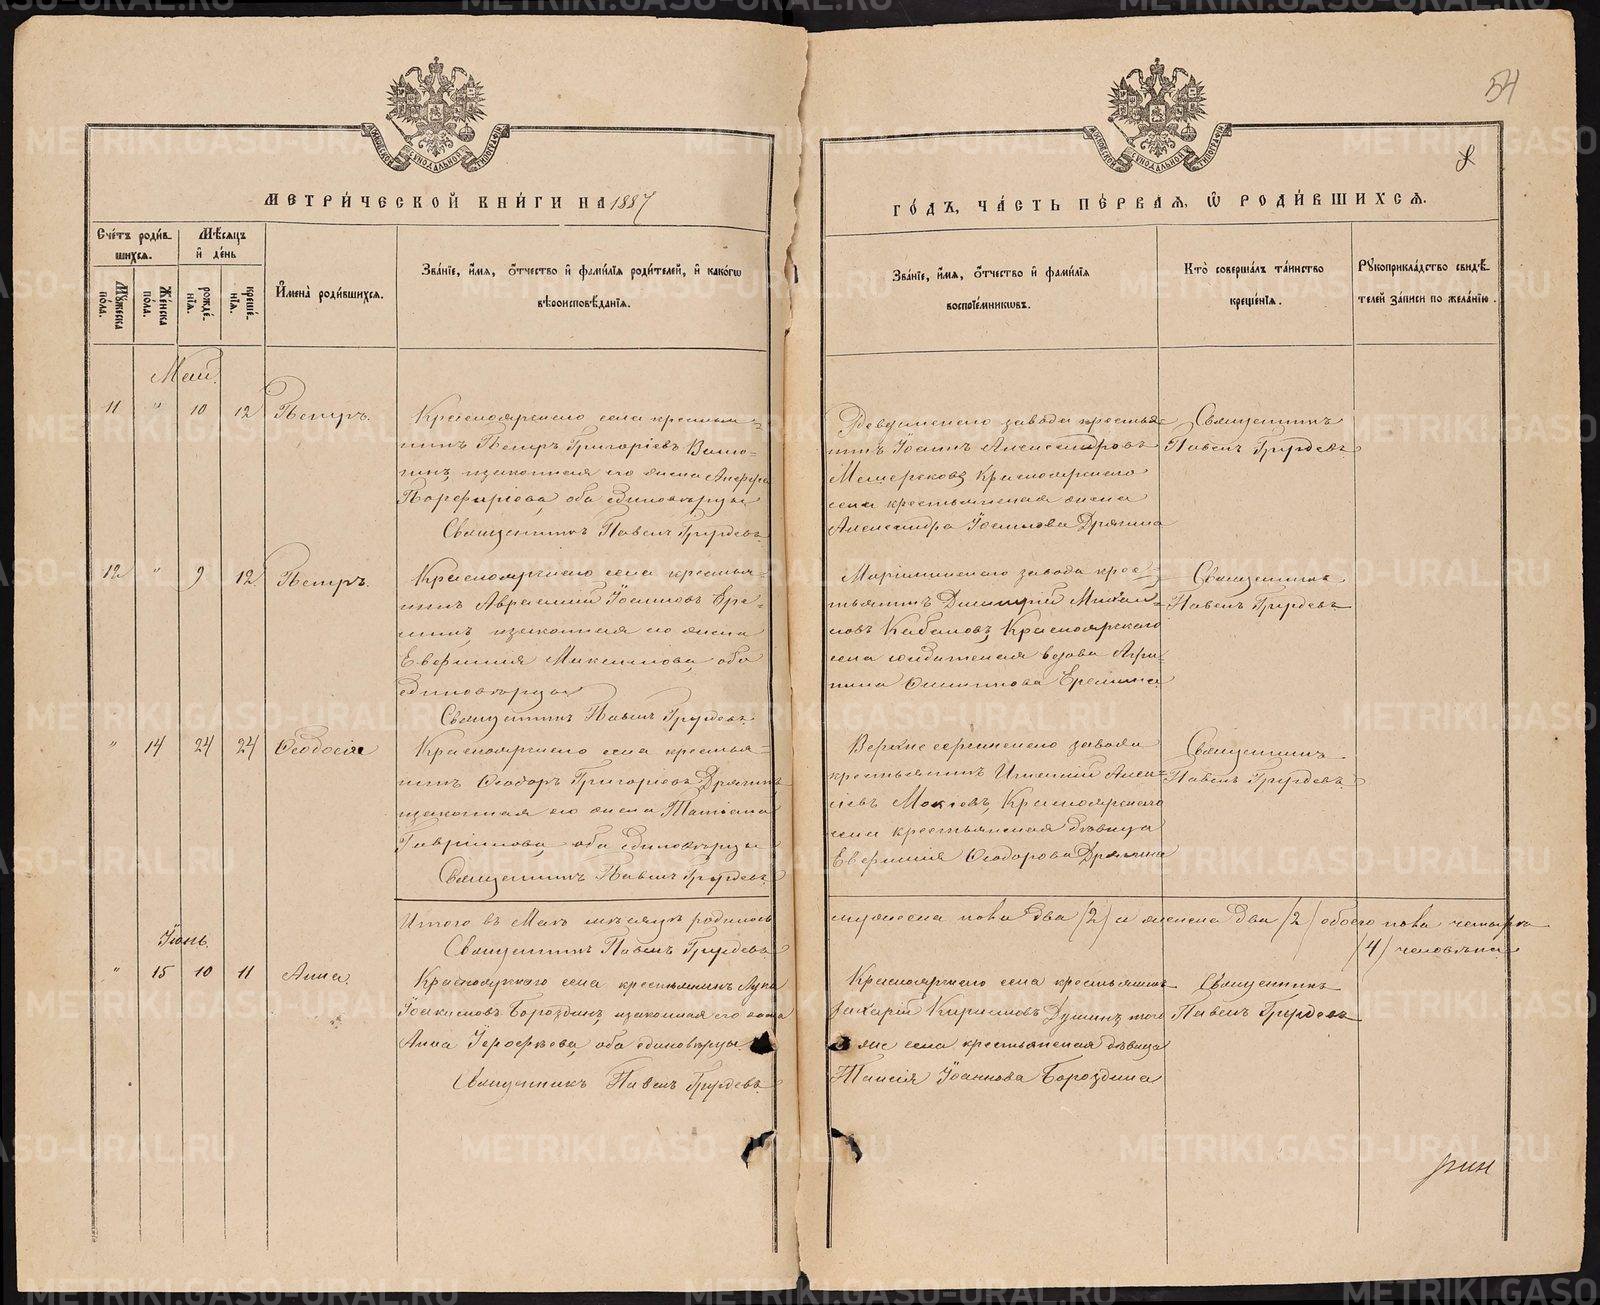 54
8
МЕТРИ́ЧЕСКОЙ КНИ́ГИ НА 1887
ГО́ДЪ, ЧА́СТЬ ПЕ́РВАЯ, Ѡ РОДИ́ВШИХСЯ.
Сче́тъ роди́вшихся.
Му́жеска по́ла.
Же́нска по́ла.
Мѣ́сяцъ и де́нь
рожде́нїя.
креще́нїя.
И҆мена̀ роди́вшихся.
Зва́нїе, и҆́мя, о҆́тчество и҆ фами́лїя роди́телей, и҆ како́гѡ
вѣроисповѣ́данїя.
Зва́нїе, и҆́мя, о҆́тчество и҆ фами́лїя
воспрїе́мникѡвъ.
Кто̀ соверша́лъ та́инство
креще́нїя.
Рукоприкла́дство свидѣ́телей за́писи по жела́нїю.
Маій.
11 " 10 12 Петръ.
Красноярскаго села крестья-
нинъ Петръ Григоріевъ
и законная его жена
Порфиріева, оба единовѣрцы
Священникъ Павелъ Груздевъ.
Ревдинскаго завода крестья-
нинъ Іоаннъ Александровъ
Мещеряковъ, Красноярскаго
села крестьянская жена
Александра Іоакимова Дрягина
Священникъ
Павелъ Груздевъ
12 " 9 12 Петръ.
Красноярскаго села крестья-
нинъ Авраамій Іоакимовъ Ере-
минъ, и законная его жена
Евфимія Максимова, оба
единовѣрцы
Священникъ Павелъ Груздевъ.
Маріинскаго завода крес-
тьянинъ Димитрій Михаи-
ловъ Кабановъ, Красноярскаго
села солдатская вдова Агри-
пина Еремина.
Священникъ
Павелъ Груздевъ
" 14 24 24 Ѳеодосія
Красноярскаго села крестья-
нинъ Ѳеодоръ Григоріевъ Дрягинъ
и законная его жена Татіана
Гавріилова, оба единовѣрцы
Священникъ Павелъ Груздевъ.
Верхне сергинскаго завода
крестьянинъ Игнатій Алек-
сіевъ Мокіевъ, Красноярскаго
села крестьянская дѣвица
Евфимія Ѳеодорова Дрягина
Священникъ
Павелъ Груздевъ.
Итого въ Маѣ мѣсяцѣ родилось
мужеска пола два (2) и женска два (2) обоего пола четыре
(4) человѣка
Священникъ Павелъ Груздевъ
Іюнь.
" 15 10 11 Анна.
Красноярскаго села крестьянинъ Лука
Іоакимовъ Бороздинъ, и законная его жена
Анна Іероѳеева, оба единовѣрцы.
Священникъ Павелъ Груздевъ
Красноярскаго села крестьянинъ
Захарій Кириловъ Душинъ, того
же села крестьянская дѣвица
Таисія Іоаннова Бороздина
Священникъ
Павелъ Груздевъ
METRIKI.GASO-URAL.RU